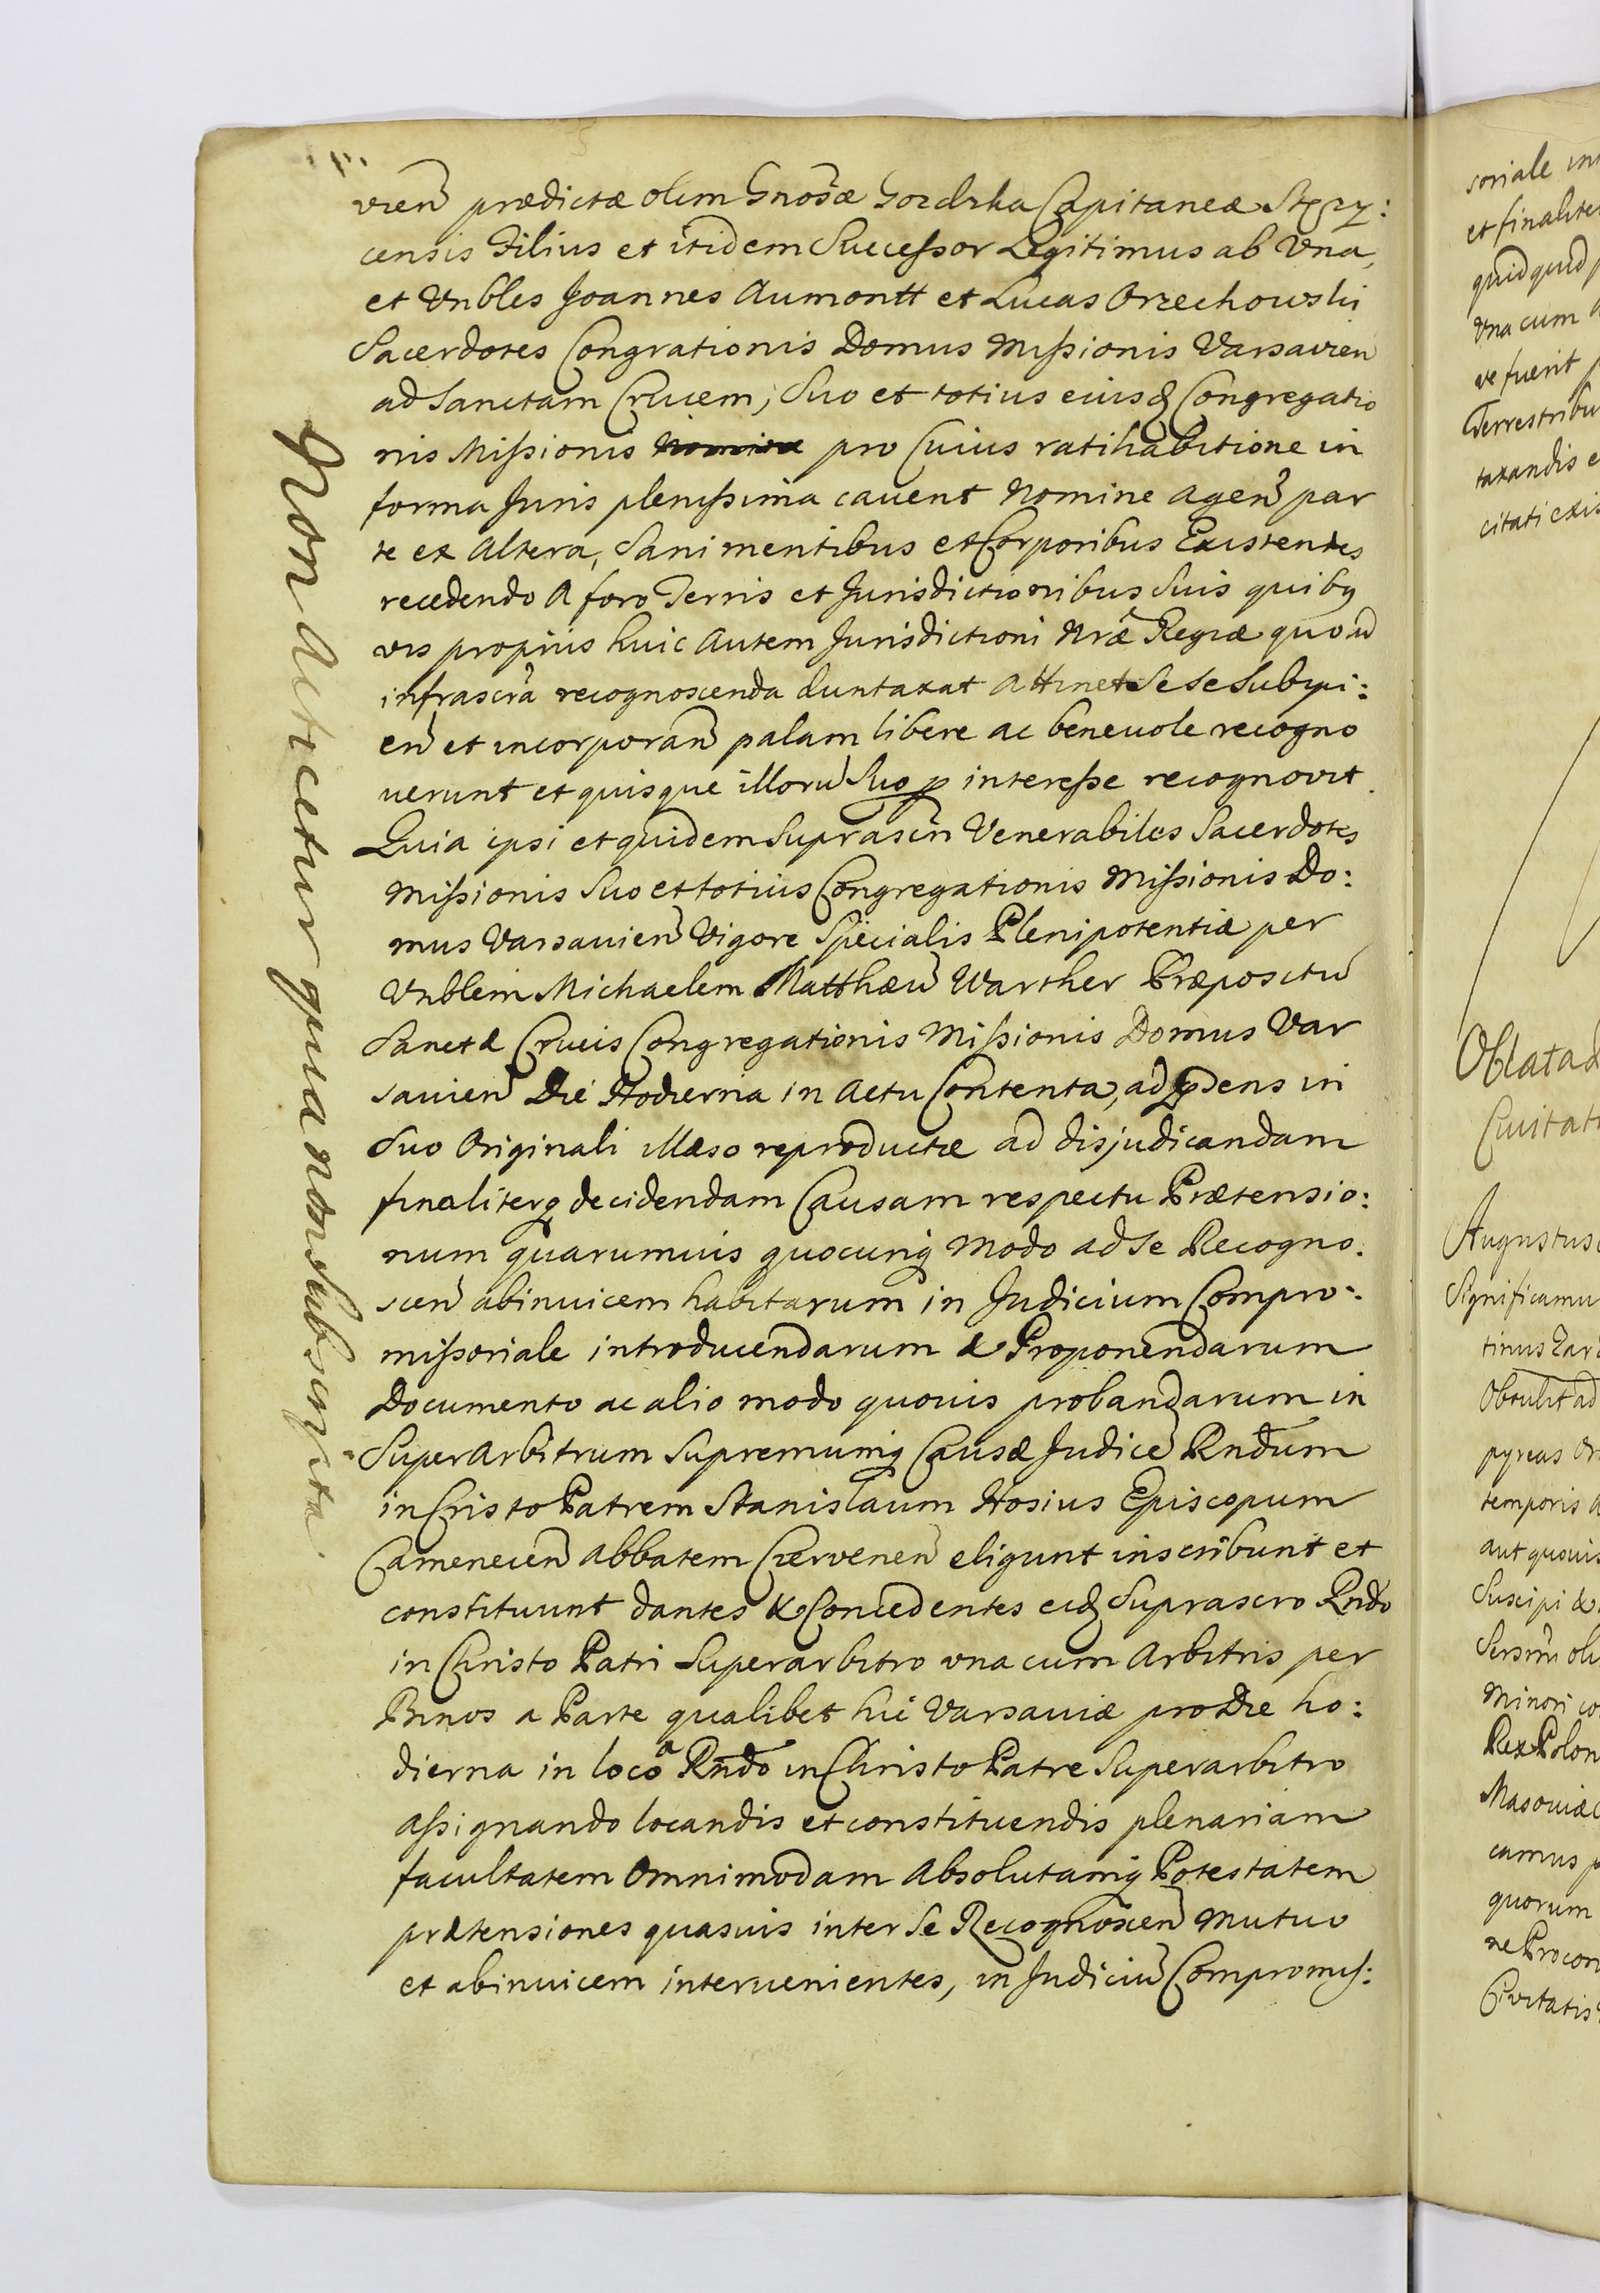 vien̄ prædictæ olim Gnosæ Capitaneæ
censis Filius et itidem Successor Legitimus ab Vna,
et Vnbles Joannes Aumontt et Lucas Orzechowski
Sacerdotes Congrationis Domus Missionis Varsavien̄
ad Sanctam Crucem, Suo et totius eiusq Congregatio
nis Missionis pro Cuius ratihabitione in
forma Juris plenissima cavent Nomine Agen̄ par
te ex Altera, Sani mentibus et Corporibus Existentes
recedendo A foro Terris et Jurisdictionibus Suis quibq
vis proprijs huic Autem Jurisdictioni Nræ Regiæ quoad
infrascra recognoscenda duntaxat Attinet Se Se Subyci:
en̄ et incorporan̄ palam libere ac benevole recogno
verunt et quisque illorū Suo p interesse recognovit.
Quia ipsi et quidem Suprascrī Venerabiles Sacerdotes
Missionis Suo et totius Congregationis Missionis Do:
mus Varsavien̄ Vigore Specialis Plenipotentiæ per
Vnblem Michaelem Matthæū Warther Præpositū
Sanctæ Crucis Congregationis Missionis Domus Var
savien̄ Die Hodierna in Actu Contenta, ad psens in
Suo Originali illæso reproductæ ad disjudicandam
finaliterq decidendam Causam respectu Prætensio:
num quarumvis quocunq Modo ad se Recogno:
scen̄ abinvicem habitarum in Judicium Compro:
missoriale introducendarum & Proponendarum
Documento ac alio modo quovis probandarum in
SuperArbitrum Supremumq Causæ Judicē Rndum
in Cristo Patrem Stanislaum Hosius Episcopum
Camenecen̄ Abbatem Czervenen̄ eligunt inscribunt et
constituunt dantes & Concedentes eidq Suprascro Rndo
in Christo Patri Superarbitro vna cum Arbitris per
Binos a Parte qualibet hic Varsaviæ pro Die ho:
dierna in loco a Rndo in Christo Patre Superarbitro
Assignando locandis et constituendis plenariam
facultatem Omnimodam Absolutamq Potestatem
prætensiones quasvis inter Se Recognoscen̄ Mutuo
et abinvicem intervenientes, in Judiciū Compromis:
Non Acticetur quia non Subscripta
soriale
et finaliter
quidquid
Vna cum
ve fuerit
Terrestribu
taxandis
citati exis
Oblata
Civitat
Augustus
Significamu
tinus
Obtulit ad
pyreas
temporis
aut quovis
Suscipi &
Minori
Rex Polon
Masoviæ
camus
quorum
ne Procon
Civitatis